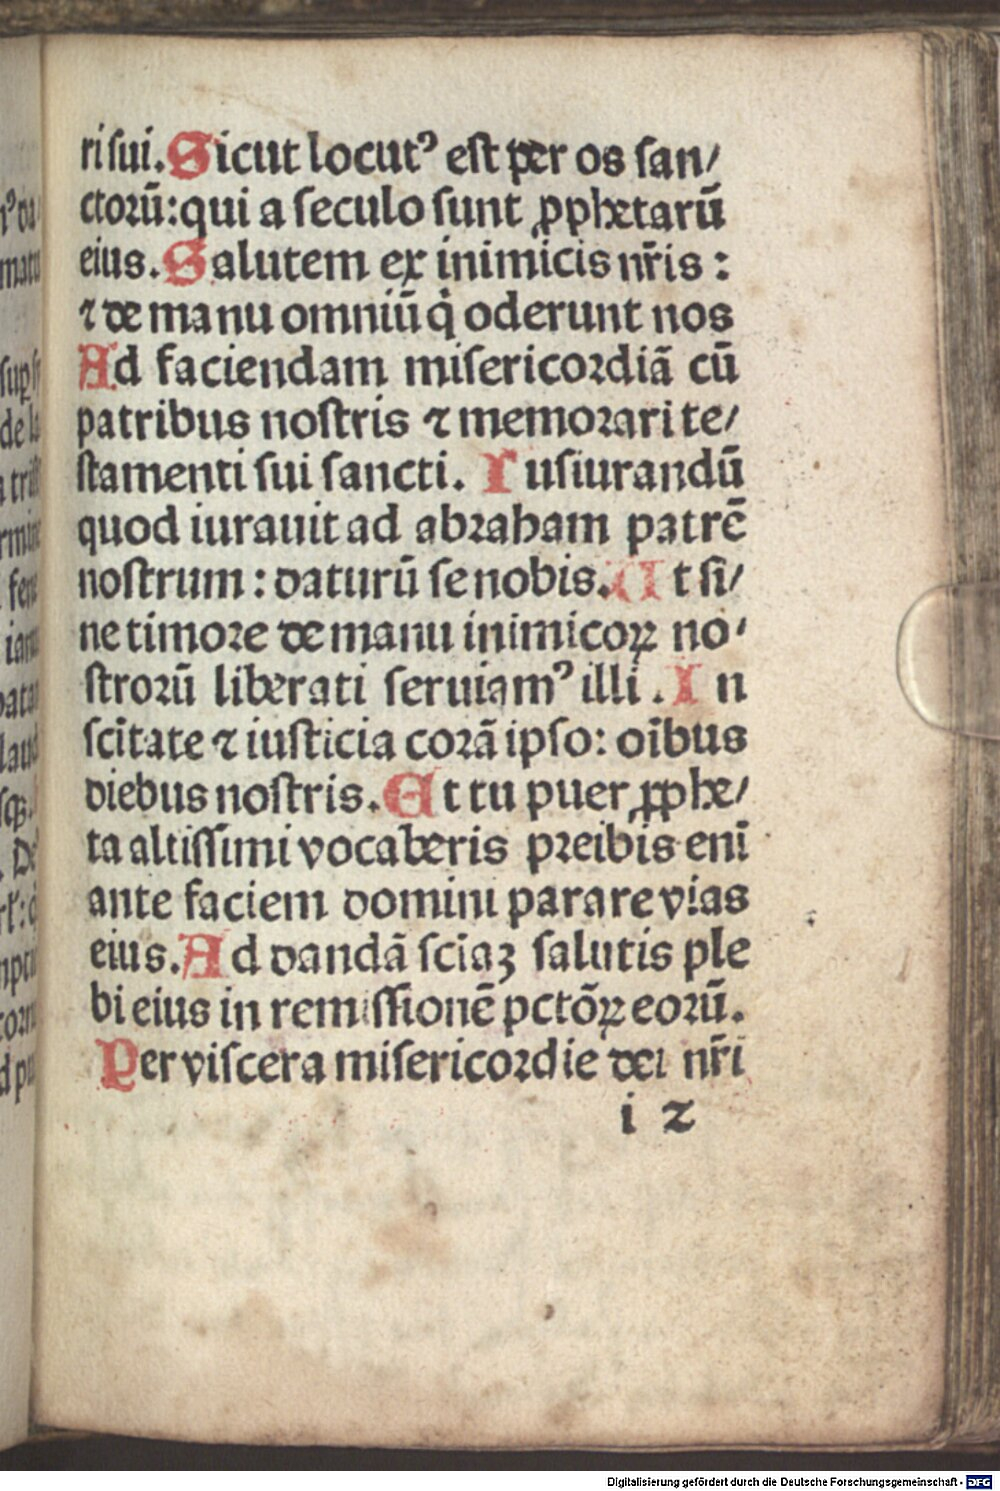 ri sui. Sicut locutꝰ est per os san/
ctorū: qui a seculo sunt ꝓphetarū
eius. Salutem ex inimicis nr̄is:
⁊ de manu omniū q̇ oderunt nos
Ad faciendam misericordiā cū
patribus nostris ⁊ memorari te/
stamenti sui sancti. Iusiurandū
quod iurauit ad abraham patrē
nostrum: daturū se nobis. Ut si/
ne timore de manu inimicoꝝ no/
strorū liberati seruiamꝰ illi. In
sc̄itate ⁊ iusticia corā ipso: oībus
diebus nostris. Et tu puer ꝓphe/
ta altissimi vocaberis preibis enī
ante faciem domini parare vias
eius. Ad dandā sciāꝫ salutis ple
bi eius in remissionē pctōꝝ eorū.
Per viscera misericordie dei nr̄i
i 2
Digitalisierung gefördert durch die Deutsche Forschungsgemeinschaft - DFG